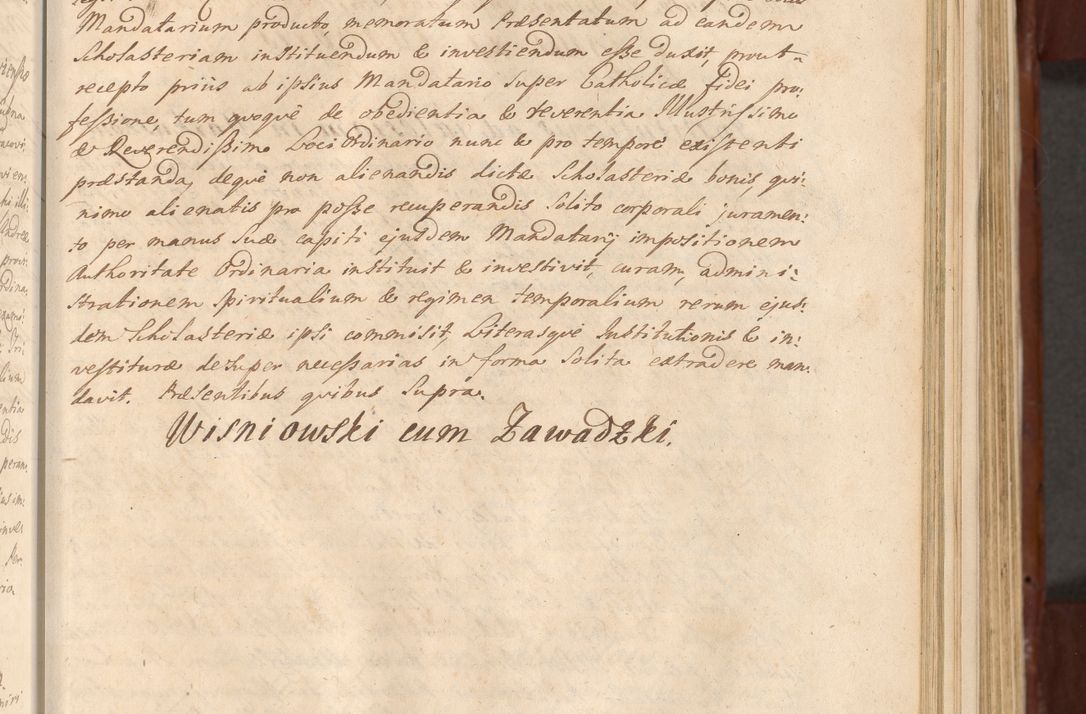 Mandatarium producto, memoratum Præsentatum ad eandem
Scholasteriam instituendum & investiendum esse duxit, prout
recepto priùs ab ipsius Mandatario super Catholicæ fidei pro:
fessione tum quoquè de obedientia & reverentia Illustrissimo
& Reverendissimo Loci Ordinario nunc & pro temporè existenti
præstanda, dequè non alienandis dictæ Scholasteriæ bonis, qui:
nimo alienatis pro posse recuperandis solito corporali juramen:
to per manus suæ capiti ejusdem Mandatarij impositionem
Authoritate Ordinaria instituit & investivit, curam, admini:
strationem spiritualium & regimen temporalium rerum ejus:
dem Scholasteriæ ipsi commisit, Literasquè Institutionis & in:
vestituræ desuper necessarias in forma solita extradere man:
davit. Præsentibus quibus supra.
Wisniowski cum Zawadzki.